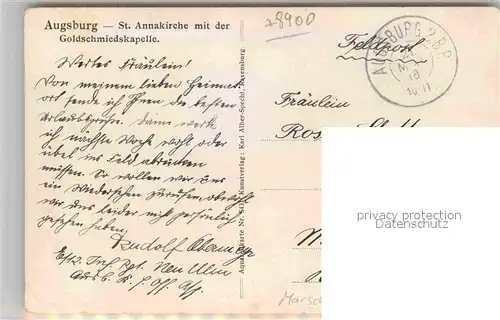 Augsburg — St. Annakirche mit der
Goldschmiedskapelle.
+8900
Feldpost
AUGSBURG 2 B.P.
18
10-11
Wertes Fräulein!
Von meinem lieben Heimat-
ort sende ich Ihnen die besten
Urlaubsgrüße. Dann werde
ich nächste Woche wohl oder
übel ins Feld abrücken
müssen. So wollen wir uns
ein Wiedersehen zurufen, obwohl
wir uns leider nicht persönlich
gesehen haben.
Rudolf
Ers. Inf. Rgt. Neu Ulm
Fräulein
Aquarellkarte Nr. 643 Kunstverlag: Karl Alber-Specht, Ravensburg
privacy protection
Datenschutz